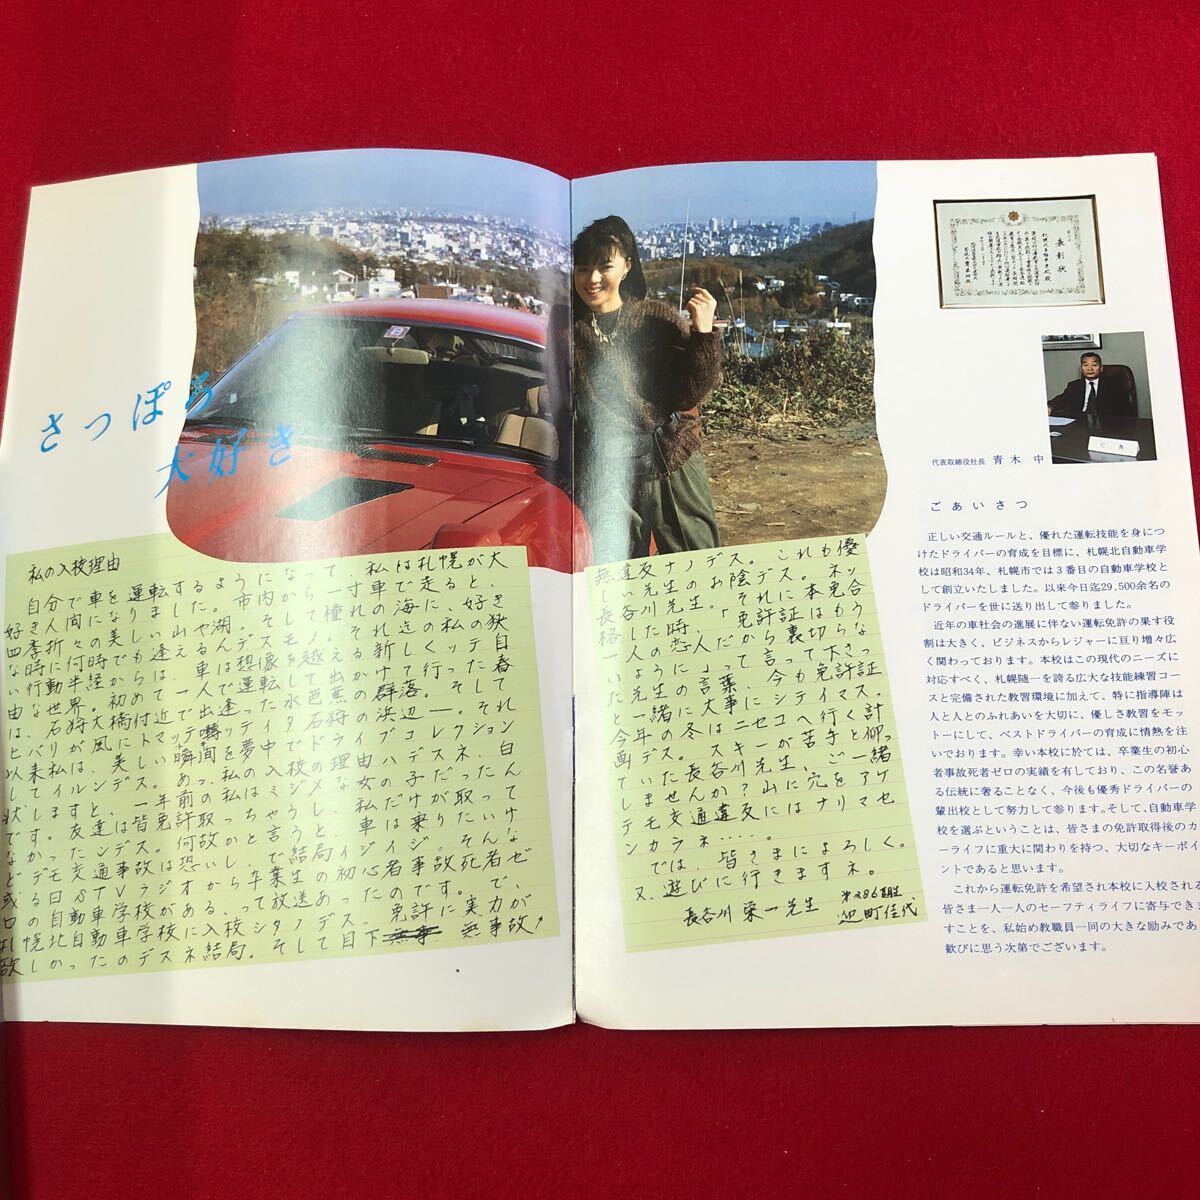 さっぽろ
大好き
私の入校理由
自分で車を運転するようになって、私は札幌が大
好き人間になりました。市内から一寸車で走ると、
四季折々の美しい山や湖。そして憧れの海に、好き
な時に何時でも逢えるんデスモノ。それ迄の私の狭
い行動半経からは、車は想像を越える新しくッテ自
由な世界。初めて一人で運転して出かけて行った春
は、石狩大橋付近で出逢った水芭蕉の群落。そして
ヒバリが風にトマッテ囀ッテイタ石狩の浜辺―。それ
以来私は、美しい瞬間を夢中でドライブコレクション
してイルンデス。あっ、私の入校の理由ハデスネ、白
状しますと、一年前の私はミジメな女の子だったん
です。友達は皆免許取っちゃうし、私だけが取って
なかったンデス。何故かと言うと、車は乗りたいけ
どデモ交通事故は恐いし、で結局イジイジ。そんな
或る日STVラジオから卒業生の初心者事故死者ゼ
ロの自動車学校がある、って放送あったのです。で、
札幌北自動車学校に入校シタノデス。免許に実力が
欲しかったのデスネ結局。そして目下 無事故!
無違反ナノデス。これも優
しい先生のお陰デス。ネッ
長谷川先生。それに本免合
格した時、「免許証はもう
一人の恋人だから裏切らな
いように」って言って下さっ
た先生の言葉、今も免許証
と一緒に大事にシテイマス。
今年の冬はニセコへ行く計
画デス。スキーが苦手と仰っ
ていた長谷川先生、ご一緒
しませんか?山に穴をアケ
テモ交通違反にはナリマセ
ンカラネ……。
では、皆さまによろしく。
又、遊びに行きますネ。
長谷川 栄一先生
第286期生
佳代
表彰状
社長
代表取締役社長 青木 中
ごあいさつ
正しい交通ルールと、優れた運転技能を身につ
けたドライバーの育成を目標に、札幌北自動車学
校は昭和34年、札幌市では3番目の自動車学校と
して創立いたしました。以来今日迄29,500余名の
ドライバーを世に送り出して参りました。
近年の車社会の進展に伴ない運転免許の果す役
割は大きく、ビジネスからレジャーに亘り増々広
く関わっております。本校はこの現代のニーズに
対応すべく、札幌随一を誇る広大な技能練習コー
スと完備された教習環境に加えて、特に指導陣は
人と人とのふれあいを大切に、優しさ教習をモッ
トーにして、ベストドライバーの育成に情熱を注
いでおります。幸い本校に於ては、卒業生の初心
者事故死者ゼロの実績を有しており、この名誉あ
る伝統に奢ることなく、今後も優秀ドライバーの
輩出校として努力して参ります。そして、自動車学
校を選ぶということは、皆さまの免許取得後のカ
ーライフに重大に関わりを持つ、大切なキーポイ
ントであると思います。
これから運転免許を希望され本校に入校される
皆さま一人一人のセーフティライフに寄与できま
すことを、私始め教職員一同の大きな励みであ
歓びに思う次第でございます。